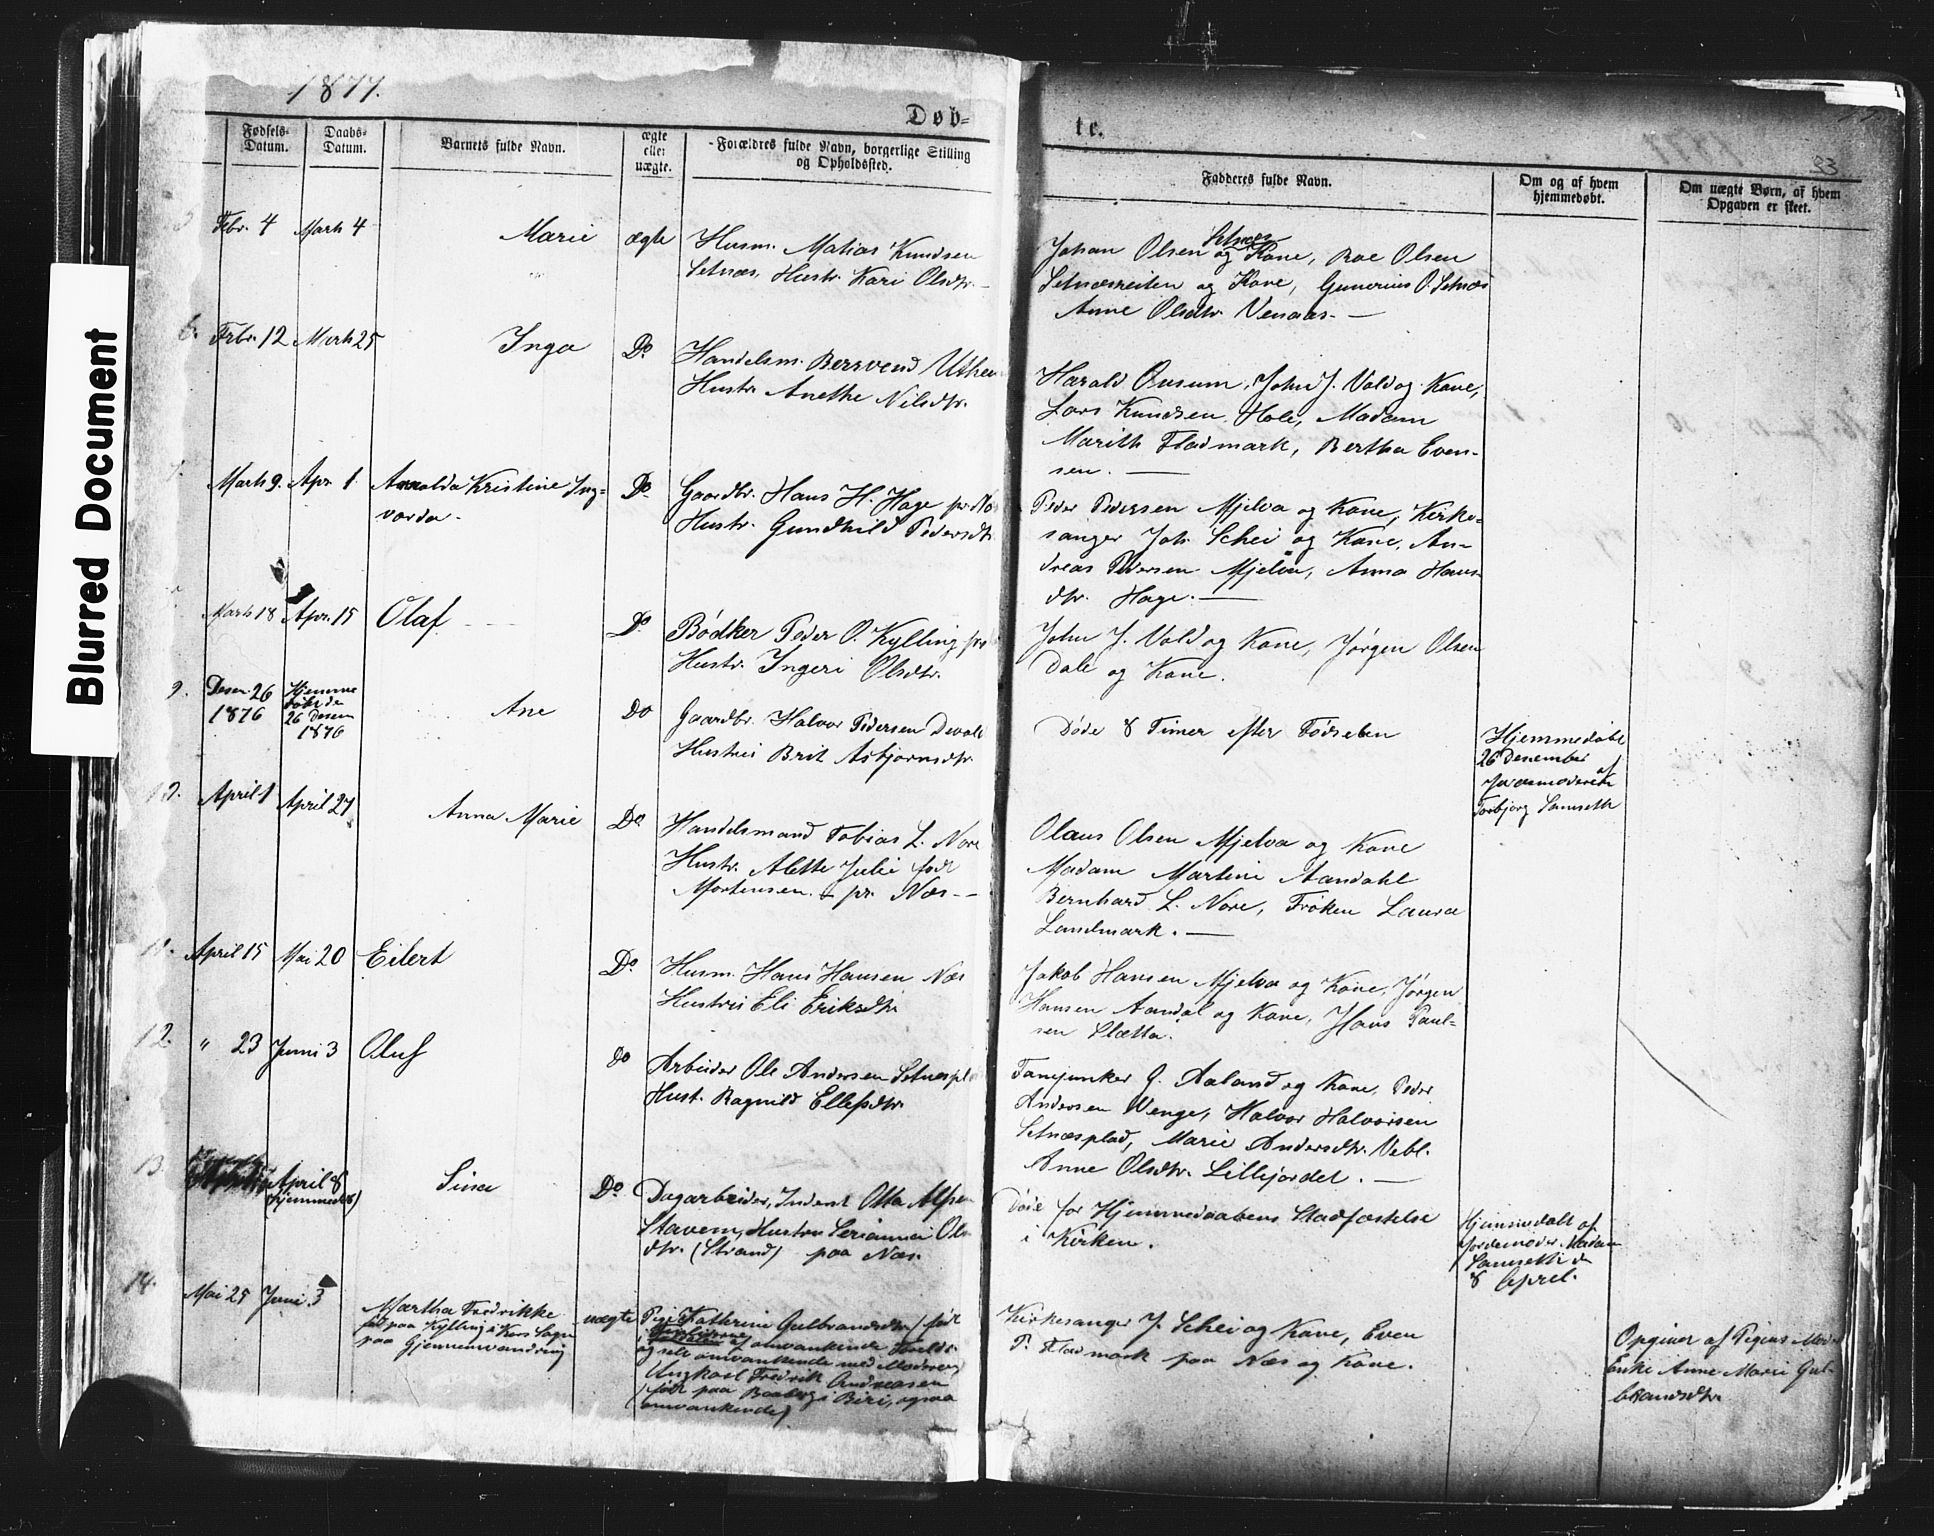 Blurred Document
1877.
Døb-
te.
23
Fødsels-
Datum.
Daabs-
Datum.
Barnets fulde Navn.
ægte
eller
uægte.
Forældres fulde Navn, borgerlige Stilling
og Opholdssted.
Fadderes fulde Navn.
Om og af hvem
hjemmedøbt.
Om uægte Børn, af hvem
Opgaven er skeet.
Febr. 4 Marts 4 Marie ægte
Husm. Matias Knudsen
Setnæs, Hustr. Kari Olsdtr. —
Setnæs
Johan Olsen og Kone, Roe Olsen
Setnæsreiten og Kone, Gunerius O. Setnæs
Anne Olsdtr. Venaas. —
6. Febr. 12 Marts 25 Inga Do
Handelsm. Berrvend
Hustr. Anethe Nilsdtr.
Harald Onsum, John J. Vold og Kone,
Lars Knudsen Hole, Madam
Marith Fladmark, Bertha Even-
sen. —
7. Marts 9. Apr. 1. Arnolda Kristine Ing-
varda. Do
Gaardbr. Hans H. Hage
Hustr. Gundhild Pedersdtr.
Peder Pedersen Mjelva og Kone, Kirke-
sanger Joh. Schei og Kone, An-
dreas Pedersen Mjelva, Anna Hans-
dtr. Hage. —
Marts 18 Apr. 15 Olaf Do
Bødker Peder O. Kylling
Hustr. Ingeri Olsdtr.
John J. Vold og Kone, Jørgen Olsen
Dale og Kone.
9. Desen. 26
1876
Hjemme
døbt de
26 Desem
1876
Ane Do
Gaardbr. Halvor Pedersen Devold
Hustru Brit Asbjørnsdtr.
Døde 8 Timer efter Fødselen
Hjemmedøbt
26 Desember
af
Jordemoderen
Torbjørg Samseth
10. April 1 April 27 Anna Marie Do
Handelsmand Tobias L. Nore
Hustr. Alette Julie født
Mortensen. — pr. Næs —
Olaus Olsen Mjelva og Kone
Madam Martine Aandahl
Bernhard L. Nore, Frøken Laura
Landmark. —
11. April 15 Mai 20 Eilert Do
Husm. Hans Hansen Næs
Hustru Eli Eriksdtr
Jakob Hansen Mjelva og Kone, Jørgen
Hansen Aandal og Kone, Hans Paul-
sen Slætta.
12. " 23 Juni 3 Oluf Do
Arbeider Ole Andersen Setnæspl
Hust. Ragnild Ellefsdtr.
Fanejunker G. Aaland og Kone, Peder
Andersen Wenge, Halvor Halvorsen
Setnæsplad, Marie Andersdtr. Vebl.
Anne Olsdtr. Lillejordet. —
13. April 8
(hjemmedøb)
Sina Do
Dagarbeider, Inderst Otto
Stavem, Hustru Serianna Ols
dtr. (Strand) paa Næs.
Døde før Hjemmedaabens Stadfæstelse
i Kirken.
Hjemmedøbt af
Jordemoder Madam
Samseth d
8 April.
14. Mai 25 Juni 3
Martha Fredrikke
født paa Kylling i Kors Sogn
paa Gjennemvandring
uægte
Pige Kathrine Gulbrandsdtr. (født
omvankende Foreldre
og selv omvankende med Moderen)
Ungkarl Fredrik Andreasen
(født paa Braaberg i Biri, ogsaa
omvankende)
Kirkesanger J. Schei og Kone, Even
P. Fladmark paa Næs og Kone.
Opgiver af Pigens Moder
Enke Anne Marie Gul-
brandsdtr.